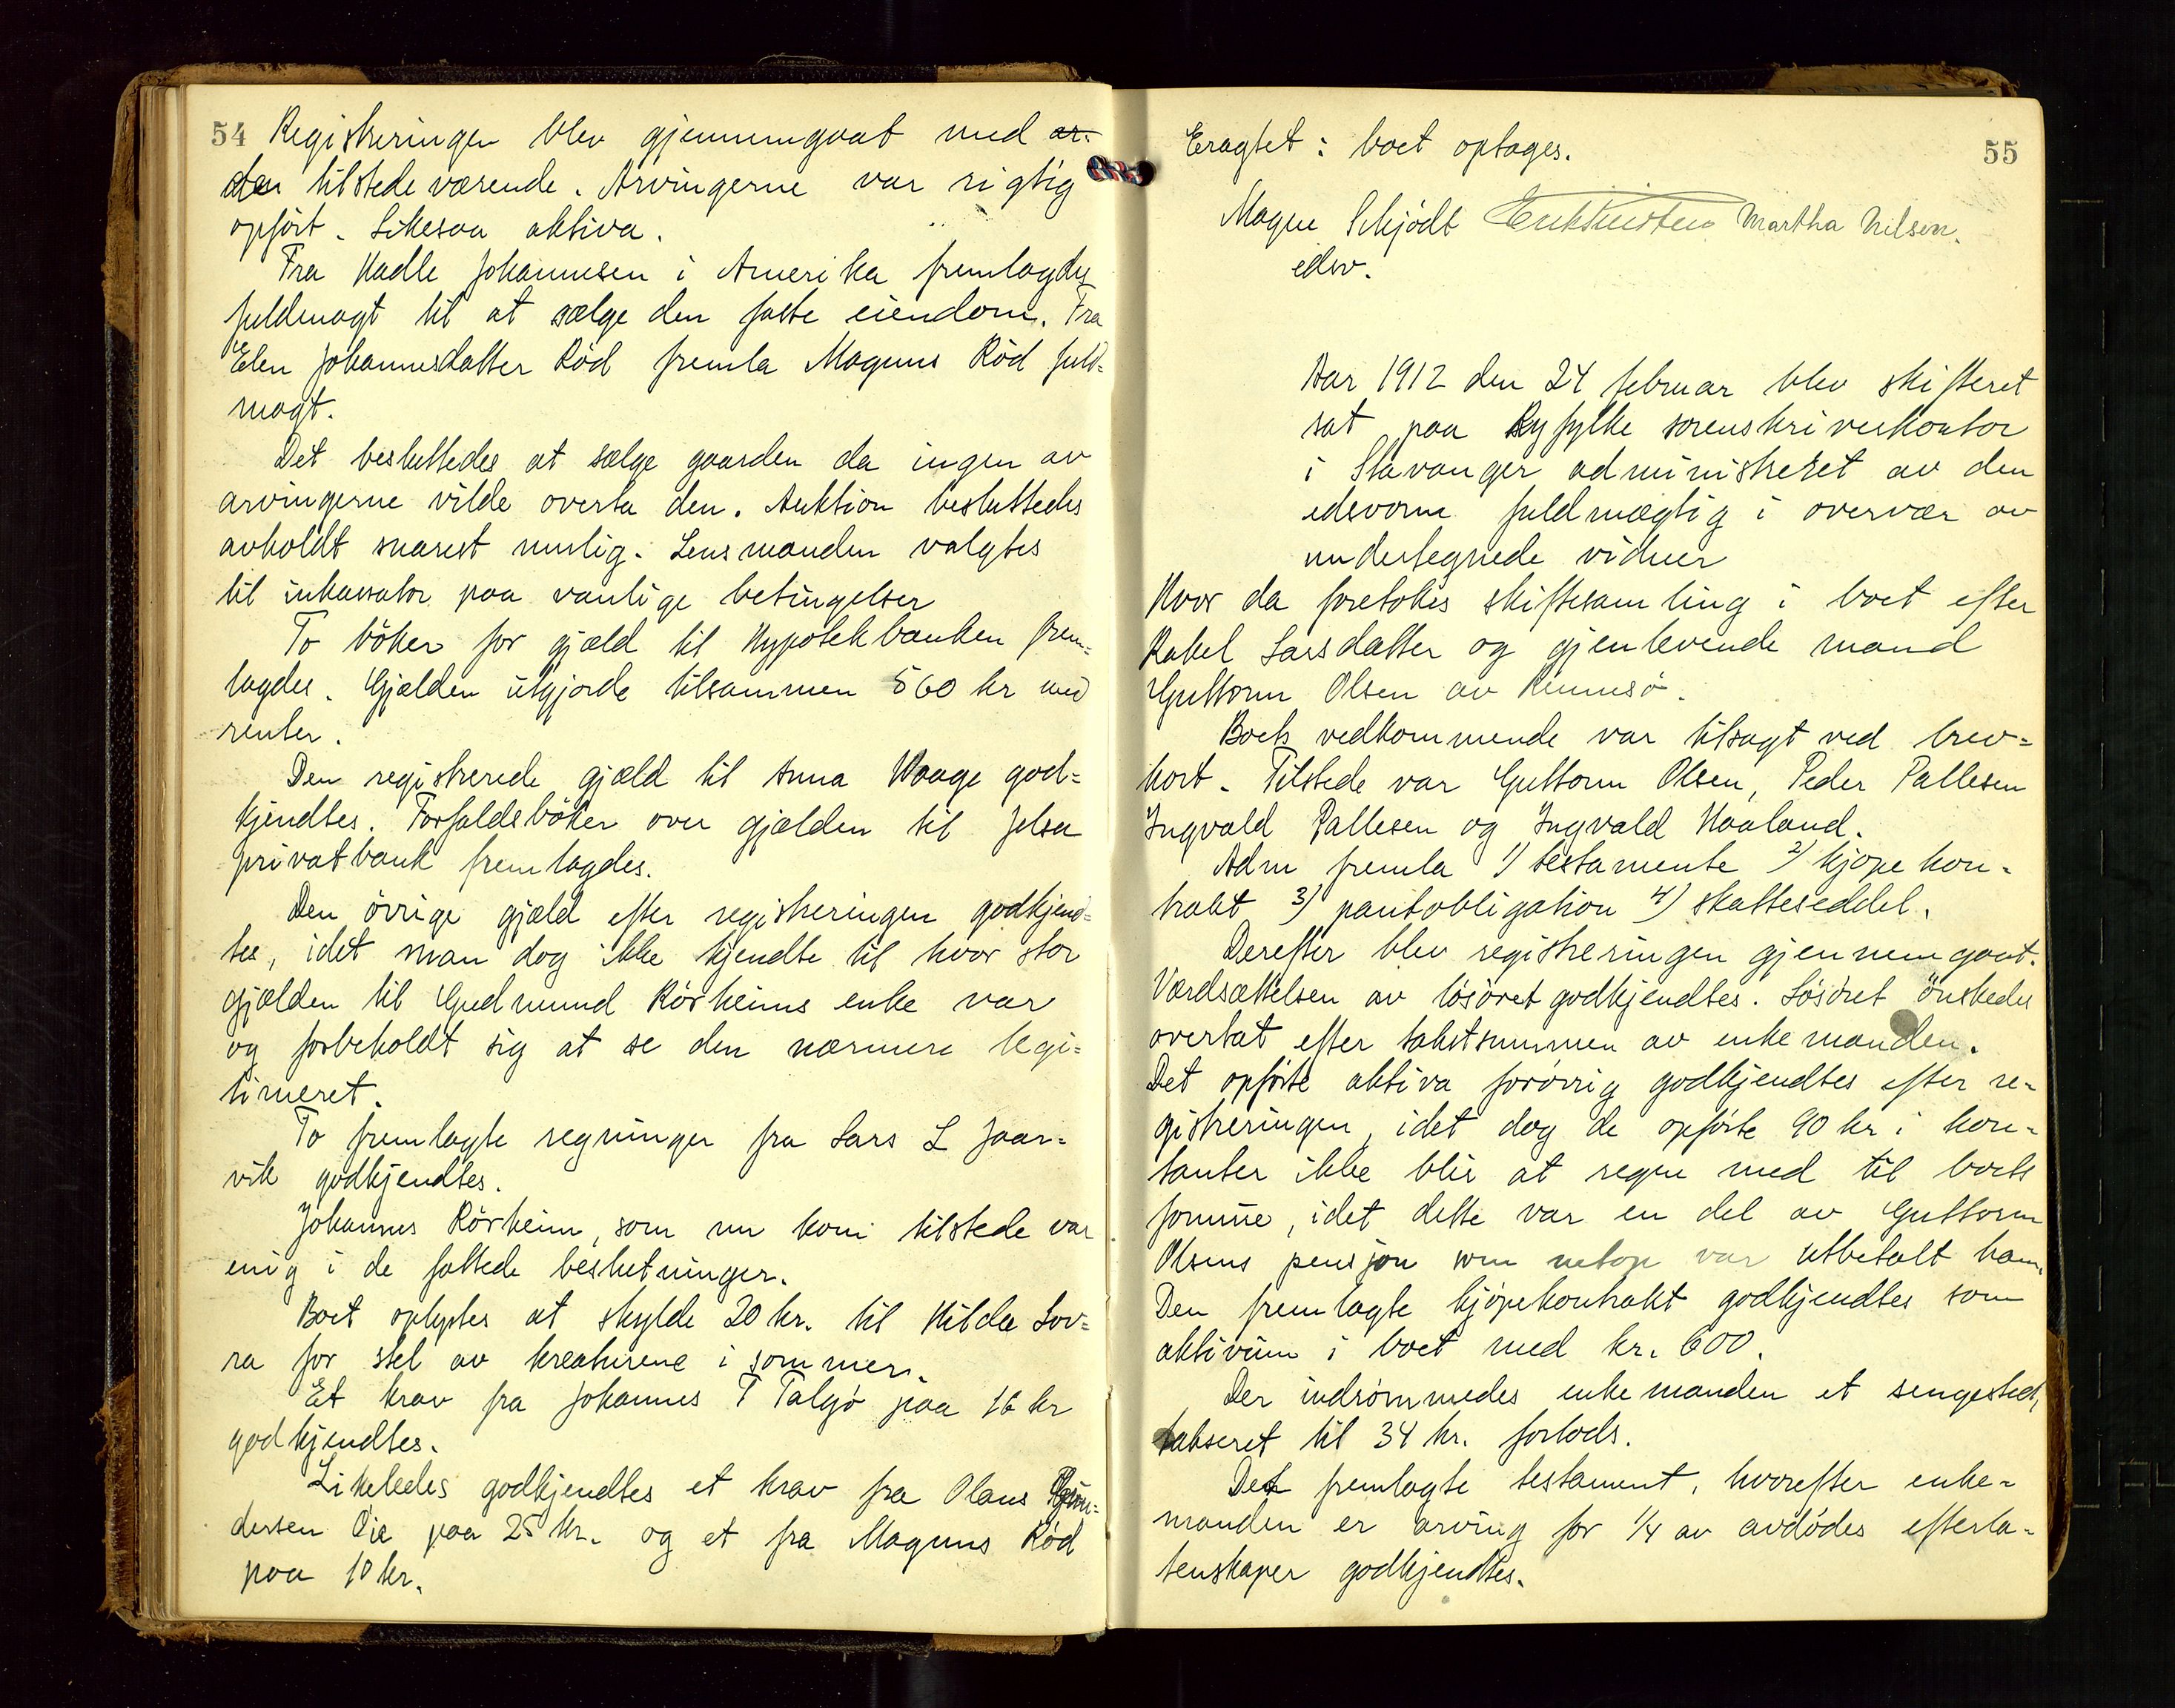 54 Registreringen blev gjennemgaat med ar-
den tilstedeværende. Arvingerne var rigtig
opført. Likesaa aktiva.
Fra Hadle Johannesen i Amerika fremlagdes
fuldmagt til at sælge den faste eiendom. Fra
Elen Johannesdatter Rød fremla Magnus Rød fuld=
magt.
Det besluttedes at sælge gaarden da ingen av
arvingerne vilde overta den. Auktion besluttedes
avholdt snarest mulig. Lensmanden valgtes
til inkassator paa vanlige betingelser
To bøker for gjæld til Hypotekbanken frem=
lagdes. Gjælden utgjorde tilsammen 560 kr med
renter.
Den registrerede gjæld til Anna Waage god=
kjendtes. Forfaldsbøker over gjælden til Jelsa
privatbank fremlagdes.
Den øvrige gjæld efter registreringen godkjend=
tes, idet man dog ikke kjendte til hvor stor
gjælden til Gudmund Rörheims enke var
og forbeholdt sig at se den nærmere legi=
timeret.
To fremlagte regninger fra Lars L Jaar=
vik godkjendtes.
Johannes Rörheim, som nu kom tilstede var
enig i de fattede beslutninger.
Boet oplystes at skylde 20 kr. til Hilda Lov=
ra for stel av kreaturene i sommer.
Et krav fra Johannes T Talgø paa 16 kr
godkjendtes.
Likeledes godkjendtes et krav fra Olaus
dersen Öie paa 25 kr. og et fra Magnus Rød
paa 10 kr.
55
Eragtet: boet optages.
Magne Schjødt Martha Nilsen.
edsv.
Aar 1912 den 24 februar blev skifteret
sat paa Ryfylke sorenskriverkontor
i Stavanger administreret av den
edsvorne fuldmægtig i overvær av
undertegnede vidner
Hvor da foretokes skiftesamling i boet efter
Rakel Larsdatter og gjenlevende mand
Guttorm Olsen av Rennesø.
Boets vedkommende var tilsagt ved brev=
kort. Tilstede var Guttorm Olsen, Peder Pallesen
Ingvald Pallesen og Ingvald Haaland.
Adm fremla 1) testamente 2) kjøpekon-
trakt 3) pantobligation 4) skatteseddel.
Derefter blev registreringen gjennemgaat.
Værdsættelsen av løsøret godkjendtes. Løsøret ønskedes
overtat efter takstsummen av enkemanden.
Det opførte aktiva forøvrig godkjendtes efter re-
gistreringen, idet dog de opførte 90 kr i kon-
tanter ikke blir at regne med til boets
formue, idet dette var en del av Guttorm
Olsens pensjon som netop var utbetalt ham.
Den fremlagte kjøpekontrakt godkjendtes som
aktivum i boet med kr. 600.
Der indrømmedes enkemanden et sengested,
takseret til 34 kr. forlods.
Det fremlagte testament, hvorefter enke-
manden er arving for 1/4 av avdødes efterla-
tenskaper godkjendtes.